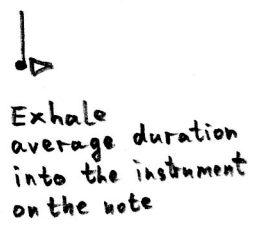 Exhale
average duration
into the instrument
on the note